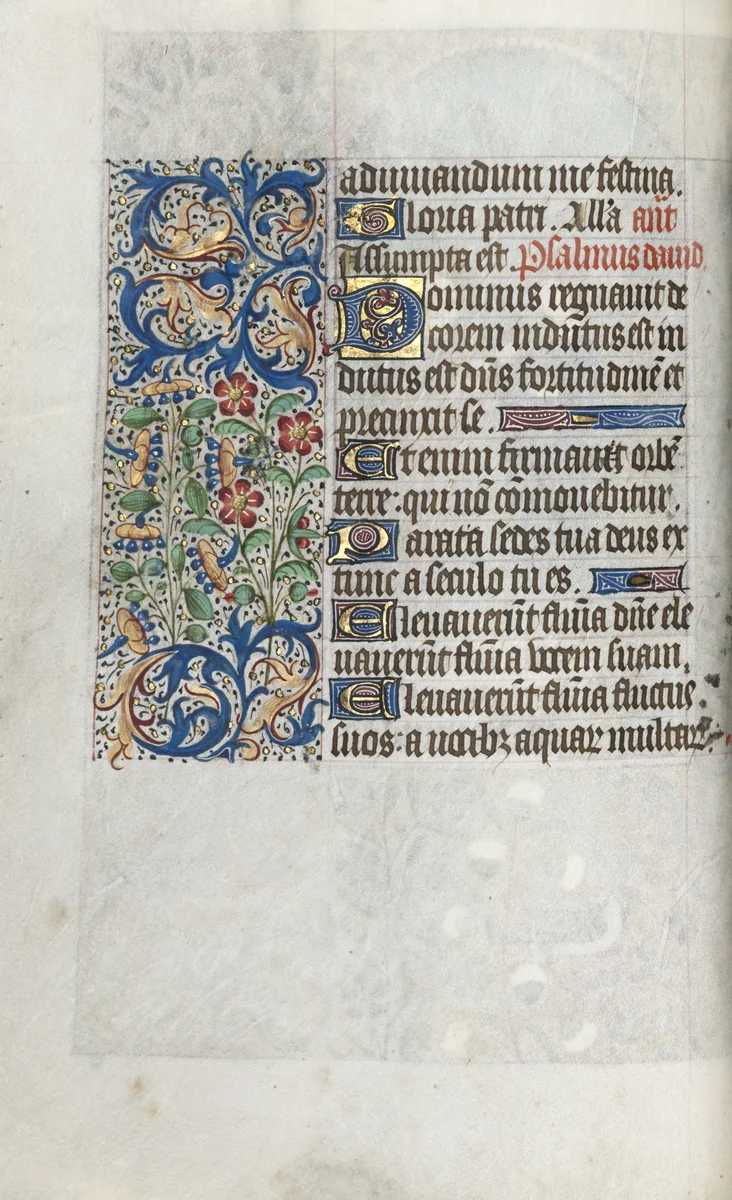 adiuuandum me festina.
Gloria patri. Alla ant
Assumpta est. Psalmus dauid.
Dominus regnauit de
corem indutus est in
dutus est dn̄s fortitudinē et
precinxit se.
Etenim firmauit orbē
terre: qui nō cōmouebitur.
Parata sedes tua deus ex
tunc a seculo tu es.
Eleuauerūt flūia dn̄e ele
uauerūt flūia vocem suam.
Eleuauerūt flūia fluctus
suos: a vocibꝫ aquaꝝ multaꝝ.